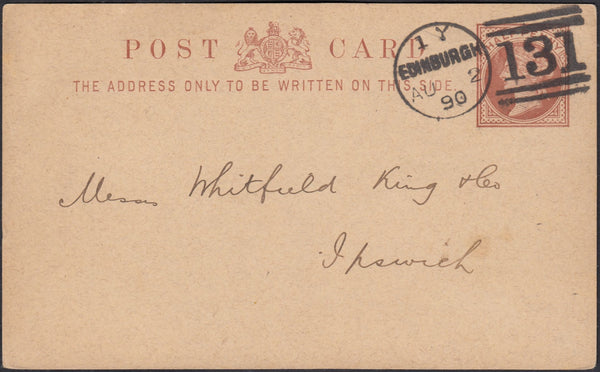 POST CARD
THE ADDRESS ONLY TO BE WRITTEN ON THIS SIDE
1 Y
EDINBURGH
AU 2
90
131
Messrs Whitfield King & Co
Ipswich